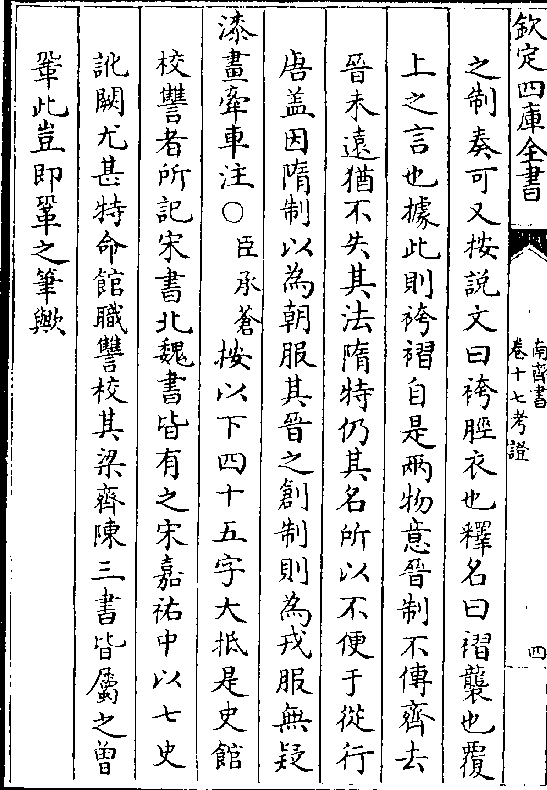 欽定四庫全書
南齊書
卷十七考證
四
之制奏可又按說文曰袴脛衣也釋名曰褶襲也覆
上之言也據此則袴褶自是兩物意晉制不傳齊去
晉未遠猶不失其法隋特仍其名所以不便于從行
唐盖因隋制以為朝服其晉之創制則為戎服無疑
漆畫牽車注○臣承蒼按以下四十五字大抵是史館
校讐者所記宋書北魏書皆有之宋嘉祐中以七史
訛闕尤甚特命館職讐校其梁齊陳三書皆屬之曾
鞏此豈即鞏之筆歟